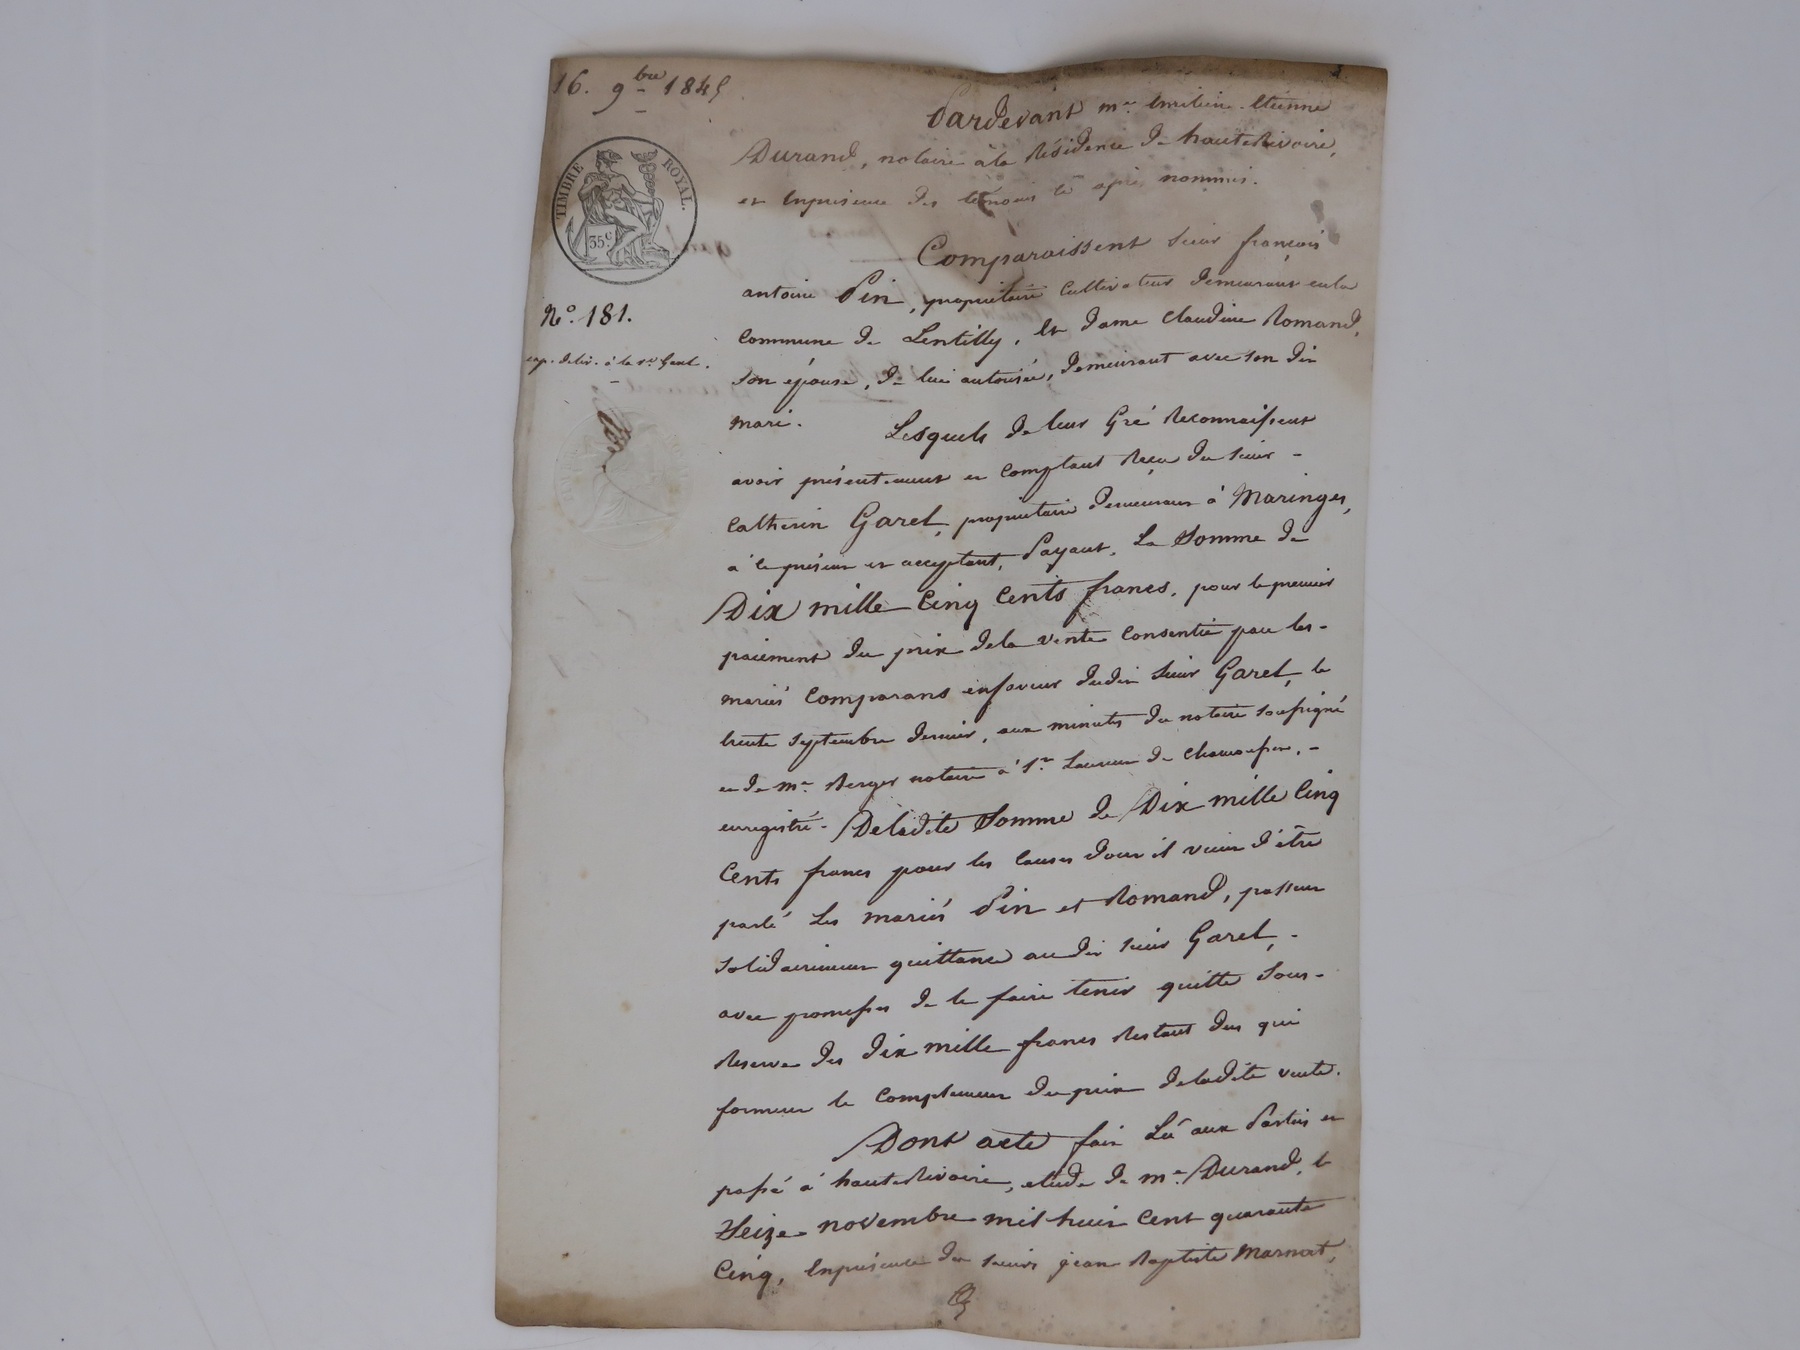 16. 9bre 1845
Pardevant me. Emilien Etienne
Durand, notaire à la Résidence de hauteRivoire,
et Enprésence des témoins ci après nommés.
TIMBRE ROYAL.
35c.
Comparaissent sieur françois
No. 181.
antoine Pin, propriétaire Cultivateur demeurant enla
Commune de Lentilly, Et dame Claudine Romand,
exp. déliv. à le sr. Garel.
son épouse, de lui autorisée, demeurant avec son dit
mari.
Lesquels de leur Gré Reconnaissent
avoir présentement et Comptant Reçu du sieur -
Catherin Garel, propriétaire demeurant à Maringes,
à ce présent et acceptant, Payant, La Somme de
Dix mille Cinq Cents francs, pour le premier
paiement du prix dela vente Consentie par les -
mariés Comparans enfaveur dudit sieur Garel, le
trente septembre dernier, aux minutes du notaire soussigné
et de me. Berger notaire à St. Laurent de Chamousset, -
enregistré. - Deladite Somme de Dix mille Cinq
Cents francs pour les Causes dont il vient d'être
parlé Les mariés Pin et Romand, passent
solidairement quittance audit sieur Garel, -
avec promesses de le faire tenir quitte Sous -
Reserve des dix mille francs Restant dus qui
forment le Complement du prix deladite vente.
Dont acte fait Lu aux Parties et
passé à hauteRivoire, etude de me. Durand, le
Seize novembre mil huit Cent quarante
Cinq, Enprésence des sieurs jean Baptiste